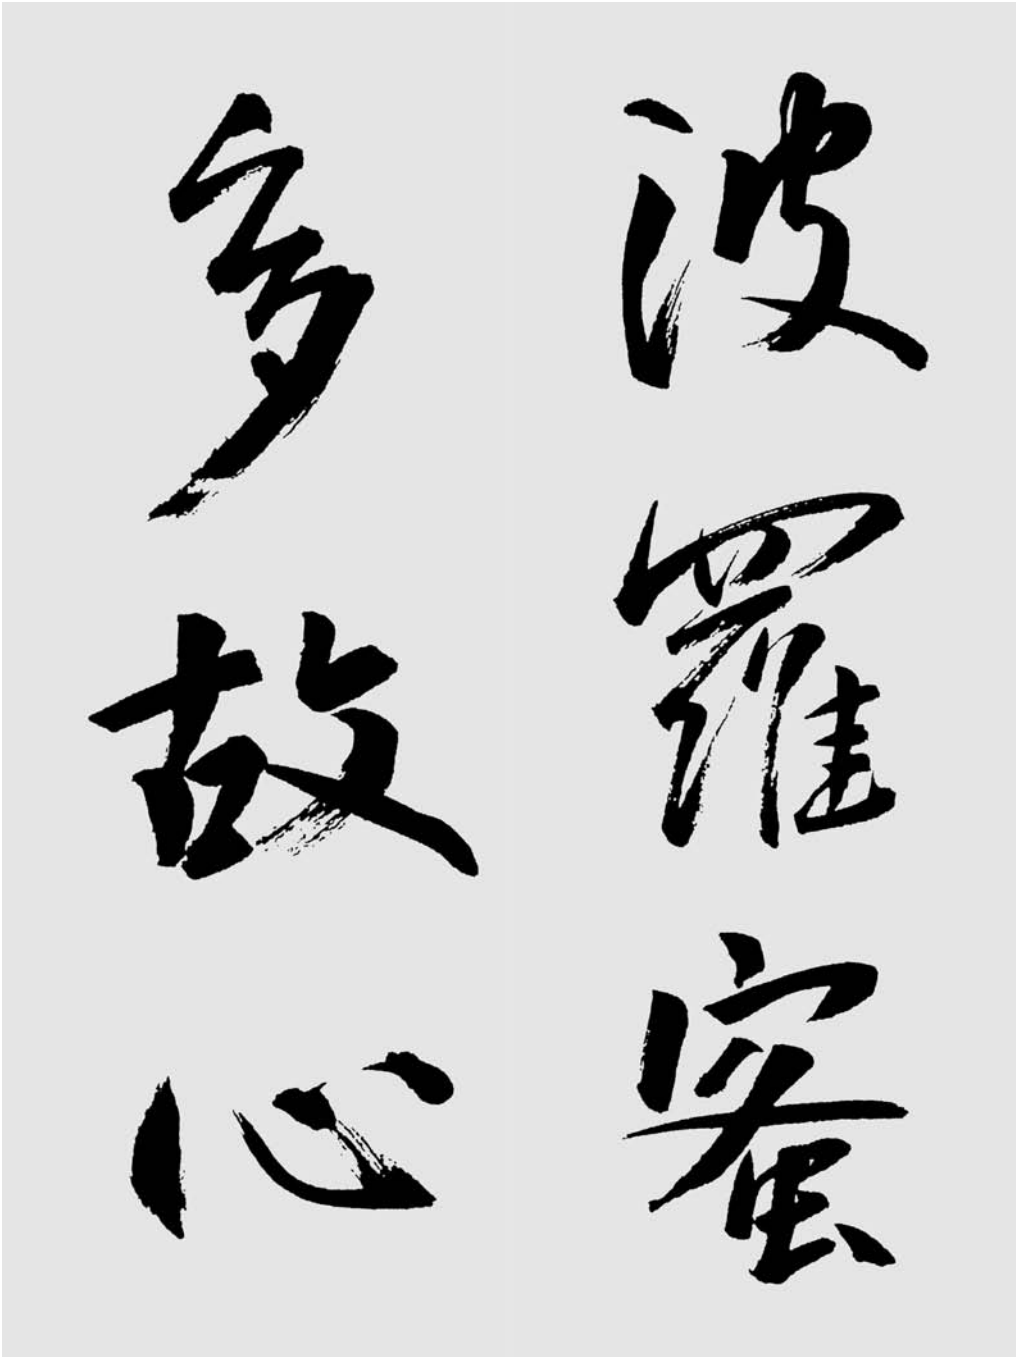 波羅蜜
多故心